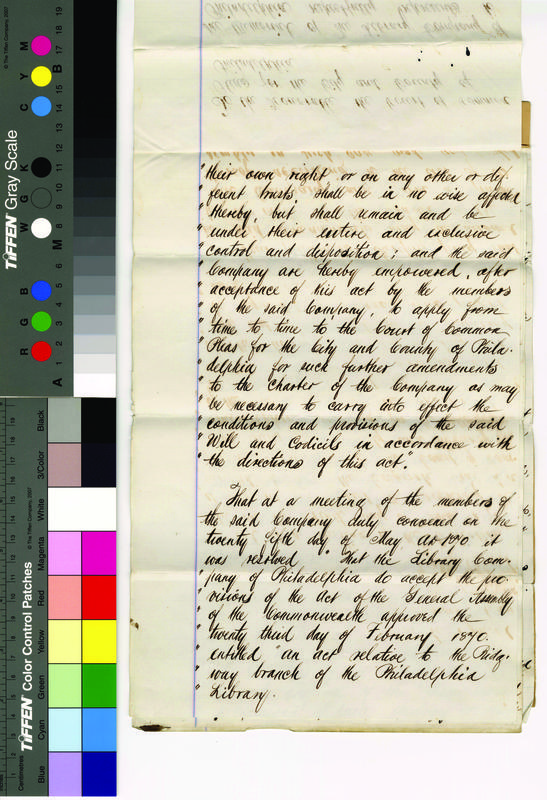 © The Tiffen Company, 2007
TIFFEN Gray Scale
R G B W G K C Y M
A 1 2 3 4 5 6 M 8 9 10 11 12 13 14 15 B 17 18 19
TIFFEN Color Control Patches
© The Tiffen Company, 2007
Centimetres
Blue Cyan Green Yellow Red Magenta White 3/Color Black
" their own right or on any other or dif-
" ferent trusts, shall be in no wise affected
" thereby, but shall remain and be
" under their entire and exclusive
" control and disposition; and the said
" Company are hereby empowered, after
" acceptance of this act by the members
" of the said Company, to apply from
" time to time to the Court of Common
" Pleas for the City and County of Phila-
" delphia for such further amendments
" to the charter of the Company as may
" be necessary to carry into effect the
" conditions and provisions of the said
" Will and Codicils in accordance with
" the directions of this act".
That at a meeting of the members of
the said Company duly convened on the
twenty fifth day of May AD 1870 it
was resolved "That the Library Com-
" pany of Philadelphia do accept the pro-
" visions of the Act of the General Assembly
" of the Commonwealth approved the
" twenty third day of February 1870.
" entitled "an act relative to the Ridg-
" way branch of the Philadelphia
" Library.